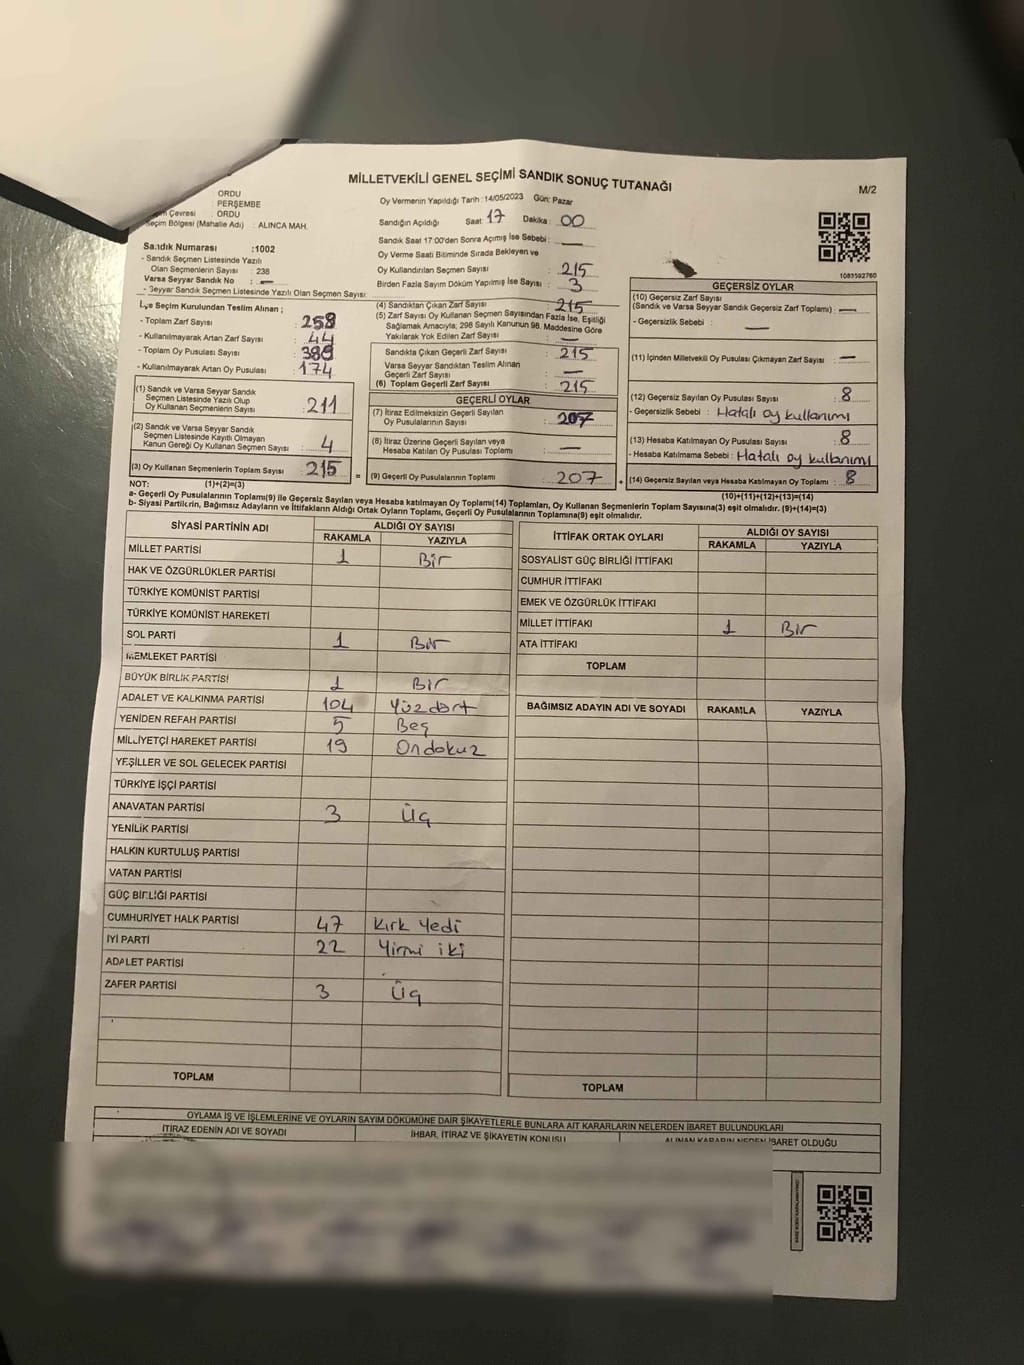 MİLLETVEKİLİ GENEL SEÇİMİ SANDIK SONUÇ TUTANAĞI
M/2
ORDU
: PERŞEMBE
Çevresi : ORDU
Seçim Bölgesi (Mahalle Adı) : ALINCA MAH.
Sandık Numarası :1002
- Sandık Seçmen Listesinde Yazılı
Olan Seçmenlerin Sayısı : 238
Varsa Seyyar Sandık No : —
- Seyyar Sandık Seçmen Listesinde Yazılı Olan Seçmen Sayısı:
İlçe Seçim Kurulundan Teslim Alınan ;
- Toplam Zarf Sayısı : 258
- Kullanılmayarak Artan Zarf Sayısı : 44
- Toplam Oy Pusulası Sayısı : 389
- Kullanılmayarak Artan Oy Pusulası : 174
(1) Sandık ve Varsa Seyyar Sandık
Seçmen Listesinde Yazılı Olup
Oy Kullanan Seçmenlerin Sayısı : 211
(2) Sandık ve Varsa Seyyar Sandık
Seçmen Listesinde Kayıtlı Olmayan
Kanun Gereği Oy Kullanan Seçmen Sayısı : 4
(3) Oy Kullanan Seçmenlerin Toplam Sayısı : 215
Oy Vermenin Yapıldığı Tarih :14/05/2023 Gün: Pazar
Sandığın Açıldığı Saat: 17 Dakika : 00
Sandık Saat 17:00'den Sonra Açılmış İse Sebebi : —
Oy Verme Saati Bitiminde Sırada Bekleyen ve
Oy Kullandırılan Seçmen Sayısı : 215
Birden Fazla Sayım Döküm Yapılmış İse Sayısı : 3
(4) Sandıktan Çıkan Zarf Sayısı : 215
(5) Zarf Sayısı Oy Kullanan Seçmen Sayısından Fazla İse, Eşitliği
Sağlamak Amacıyla; 298 Sayılı Kanunun 98. Maddesine Göre
Yakılarak Yok Edilen Zarf Sayısı : —
Sandıkta Çıkan Geçerli Zarf Sayısı : 215
Varsa Seyyar Sandıktan Teslim Alınan
Geçerli Zarf Sayısı : —
(6) Toplam Geçerli Zarf Sayısı : 215
GEÇERLİ OYLAR
(7) İtiraz Edilmeksizin Geçerli Sayılan
Oy Pusulalarının Sayısı : 207
(8) İtiraz Üzerine Geçerli Sayılan veya
Hesaba Katılan Oy Pusulası Toplamı : —
= (9) Geçerli Oy Pusulalarının Toplamı : 207 +
1083592760
GEÇERSİZ OYLAR
(10) Geçersiz Zarf Sayısı
(Sandık ve Varsa Seyyar Sandık Geçersiz Zarf Toplamı) : —
- Geçersizlik Sebebi : —
(11) İçinden Milletvekili Oy Pusulası Çıkmayan Zarf Sayısı : —
(12) Geçersiz Sayılan Oy Pusulası Sayısı : 8
- Geçersizlik Sebebi : Hatalı oy kullanımı
(13) Hesaba Katılmayan Oy Pusulası Sayısı : 8
- Hesaba Katılmama Sebebi : Hatalı oy kullanımı
(14) Geçersiz Sayılan veya Hesaba Katılmayan Oy Toplamı : 8
NOT: (1)+(2)=(3) (10)+(11)+(12)+(13)=(14)
a- Geçerli Oy Pusulalarının Toplamı(9) ile Geçersiz Sayılan veya Hesaba katılmayan Oy Toplamı(14) Toplamları, Oy Kullanan Seçmenlerin Toplam Sayısına(3) eşit olmalıdır. (9)+(14)=(3)
b- Siyasi Partilerin, Bağımsız Adayların ve İttifakların Aldığı Ortak Oyların Toplamı, Geçerli Oy Pusulalarının Toplamına(9) eşit olmalıdır.
SİYASİ PARTİNİN ADI ALDIĞI OY SAYISI
RAKAMLA YAZIYLA
MİLLET PARTİSİ 1 Bir
HAK VE ÖZGÜRLÜKLER PARTİSİ
TÜRKİYE KOMÜNİST PARTİSİ
TÜRKİYE KOMÜNİST HAREKETİ
SOL PARTİ 1 Bir
MEMLEKET PARTİSİ
BÜYÜK BİRLİK PARTİSİ 1 Bir
ADALET VE KALKINMA PARTİSİ 104 Yüzdört
YENİDEN REFAH PARTİSİ 5 Beş
MİLLİYETÇİ HAREKET PARTİSİ 19 Ondokuz
YEŞİLLER VE SOL GELECEK PARTİSİ
TÜRKİYE İŞÇİ PARTİSİ
ANAVATAN PARTİSİ 3 Üç
YENİLİK PARTİSİ
HALKIN KURTULUŞ PARTİSİ
VATAN PARTİSİ
GÜÇ BİRLİĞİ PARTİSİ
CUMHURİYET HALK PARTİSİ 47 Kırk Yedi
İYİ PARTİ 22 Yirmi iki
ADALET PARTİSİ
ZAFER PARTİSİ 3 Üç
TOPLAM
İTTİFAK ORTAK OYLARI ALDIĞI OY SAYISI
RAKAMLA YAZIYLA
SOSYALİST GÜÇ BİRLİĞİ İTTİFAKI
CUMHUR İTTİFAKI
EMEK VE ÖZGÜRLÜK İTTİFAKI
MİLLET İTTİFAKI 1 Bir
ATA İTTİFAKI
TOPLAM
BAĞIMSIZ ADAYIN ADI VE SOYADI RAKAMLA YAZIYLA
TOPLAM
OYLAMA İŞ VE İŞLEMLERİNE VE OYLARIN SAYIM DÖKÜMÜNE DAİR ŞİKAYETLERLE BUNLARA AİT KARARLARIN NELERDEN İBARET BULUNDUKLARI
İTİRAZ EDENİN ADI VE SOYADI İHBAR, İTİRAZ VE ŞİKAYETİN KONUSU ALINAN KARARIN NEDEN İBARET OLDUĞU